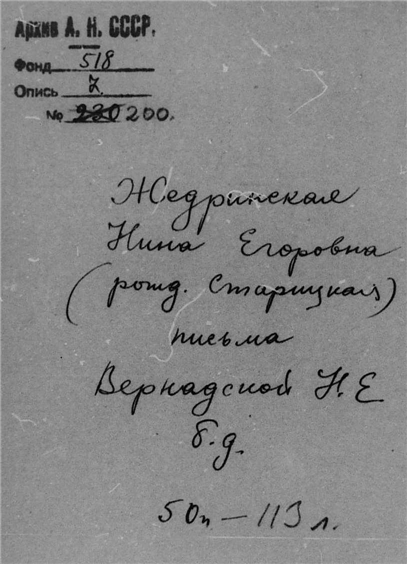 Архив А. Н. СССР.
Фонд 518
Опись 7
№ 220 200.
Жедринская
Нина Егоровна
(рожд. Старицкая)
письма
Вернадской Н.Е
б.д.
50п – 113 л.